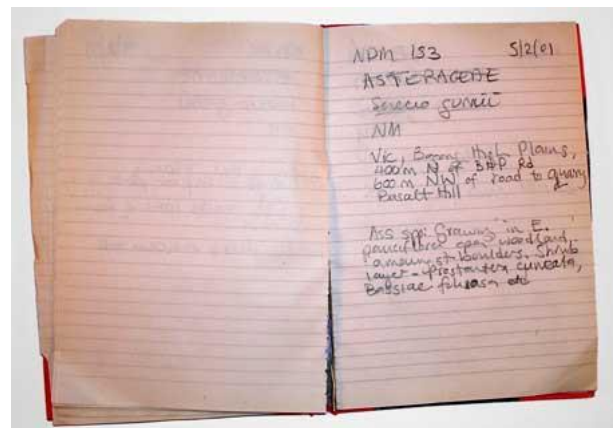 NDM 153 5/2/01
ASTERACEAE
Senecio gunnii
NM
Vic, Bogong High Plains,
400m N of BHP Rd
600m NW of road to quarry
Basalt Hill
Ass spp: Growing in E.
pauciflora open woodland,
amoungst boulders. Shrub
layer - Prostanthera cuneata,
Bossiae foliosa etc